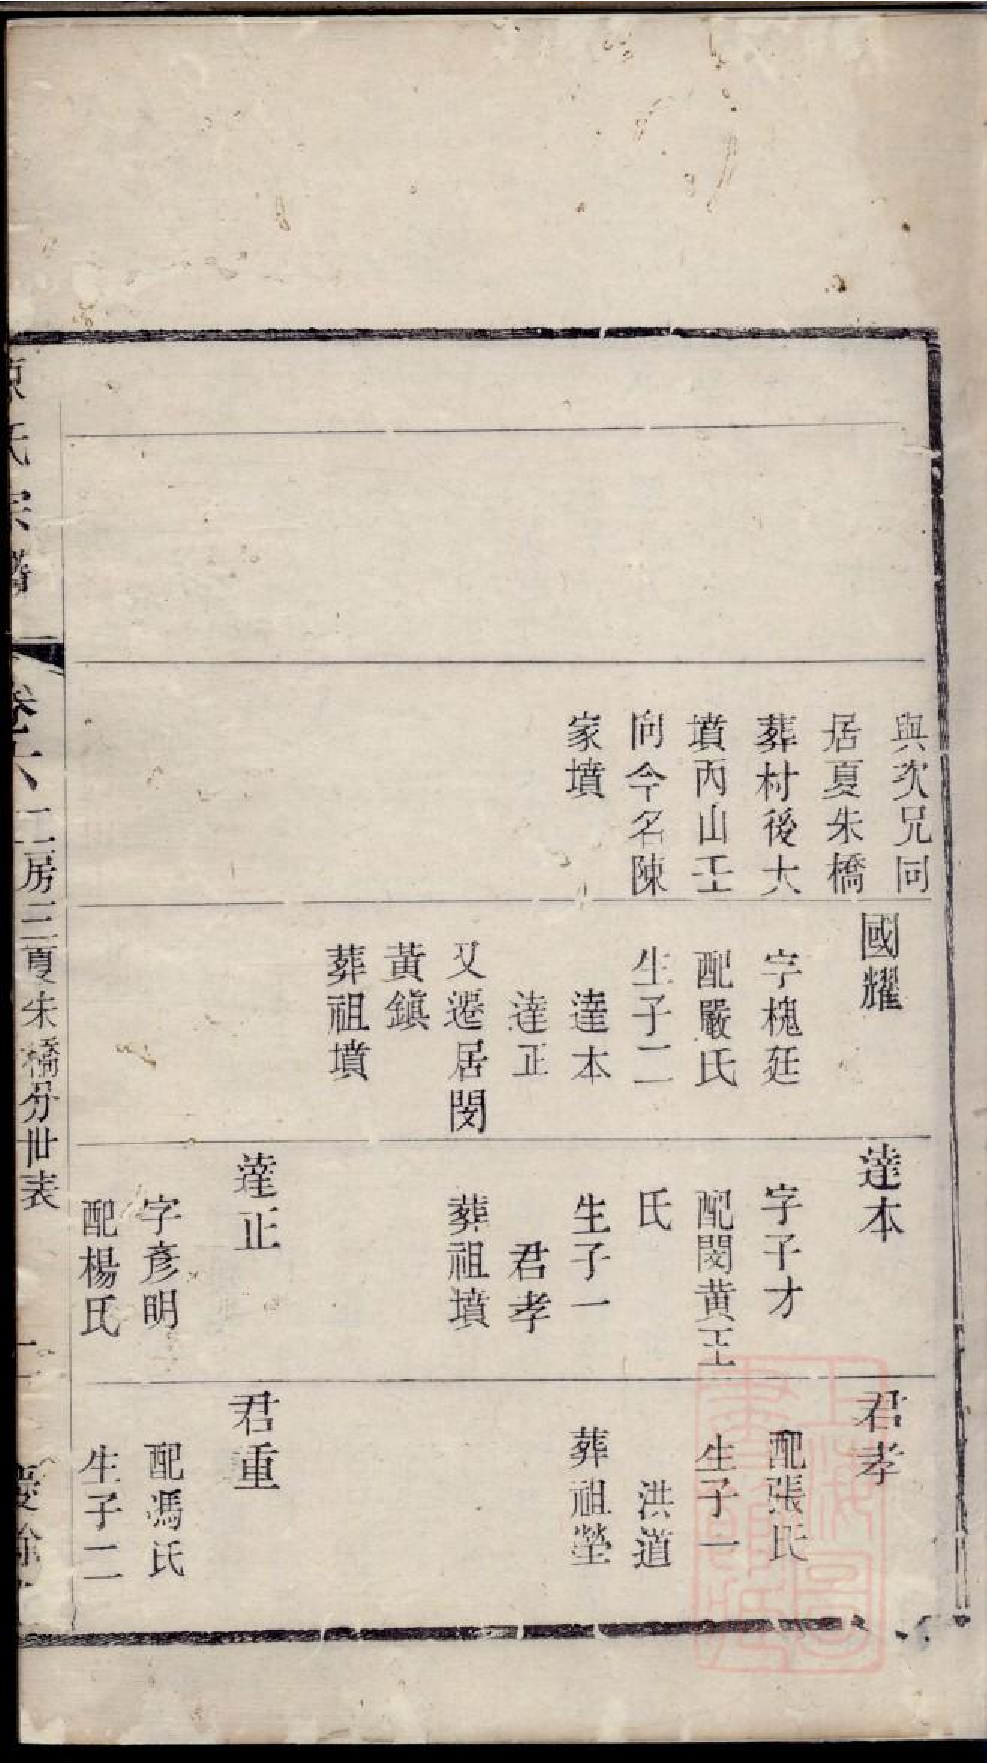 與次兄同
居夏朱橋
葬村後大
墳丙山壬
向今名陳
家墳
國耀
字槐廷
配嚴氏
生子二
達本
達正
又遷居閔
黃鎮
葬祖墳
達本
字子才
配閔黃王
氏
生子一
君孝
葬祖墳
達正
字彥明
配楊氏
君孝
配張氏
生子一
洪道
葬祖塋
君重
配馮氏
生子二
陳氏宗譜
卷六
二房三夏朱橋分世表